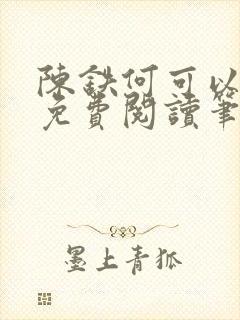 陳鉄何可以
免費閱讀筆
墨上青狐